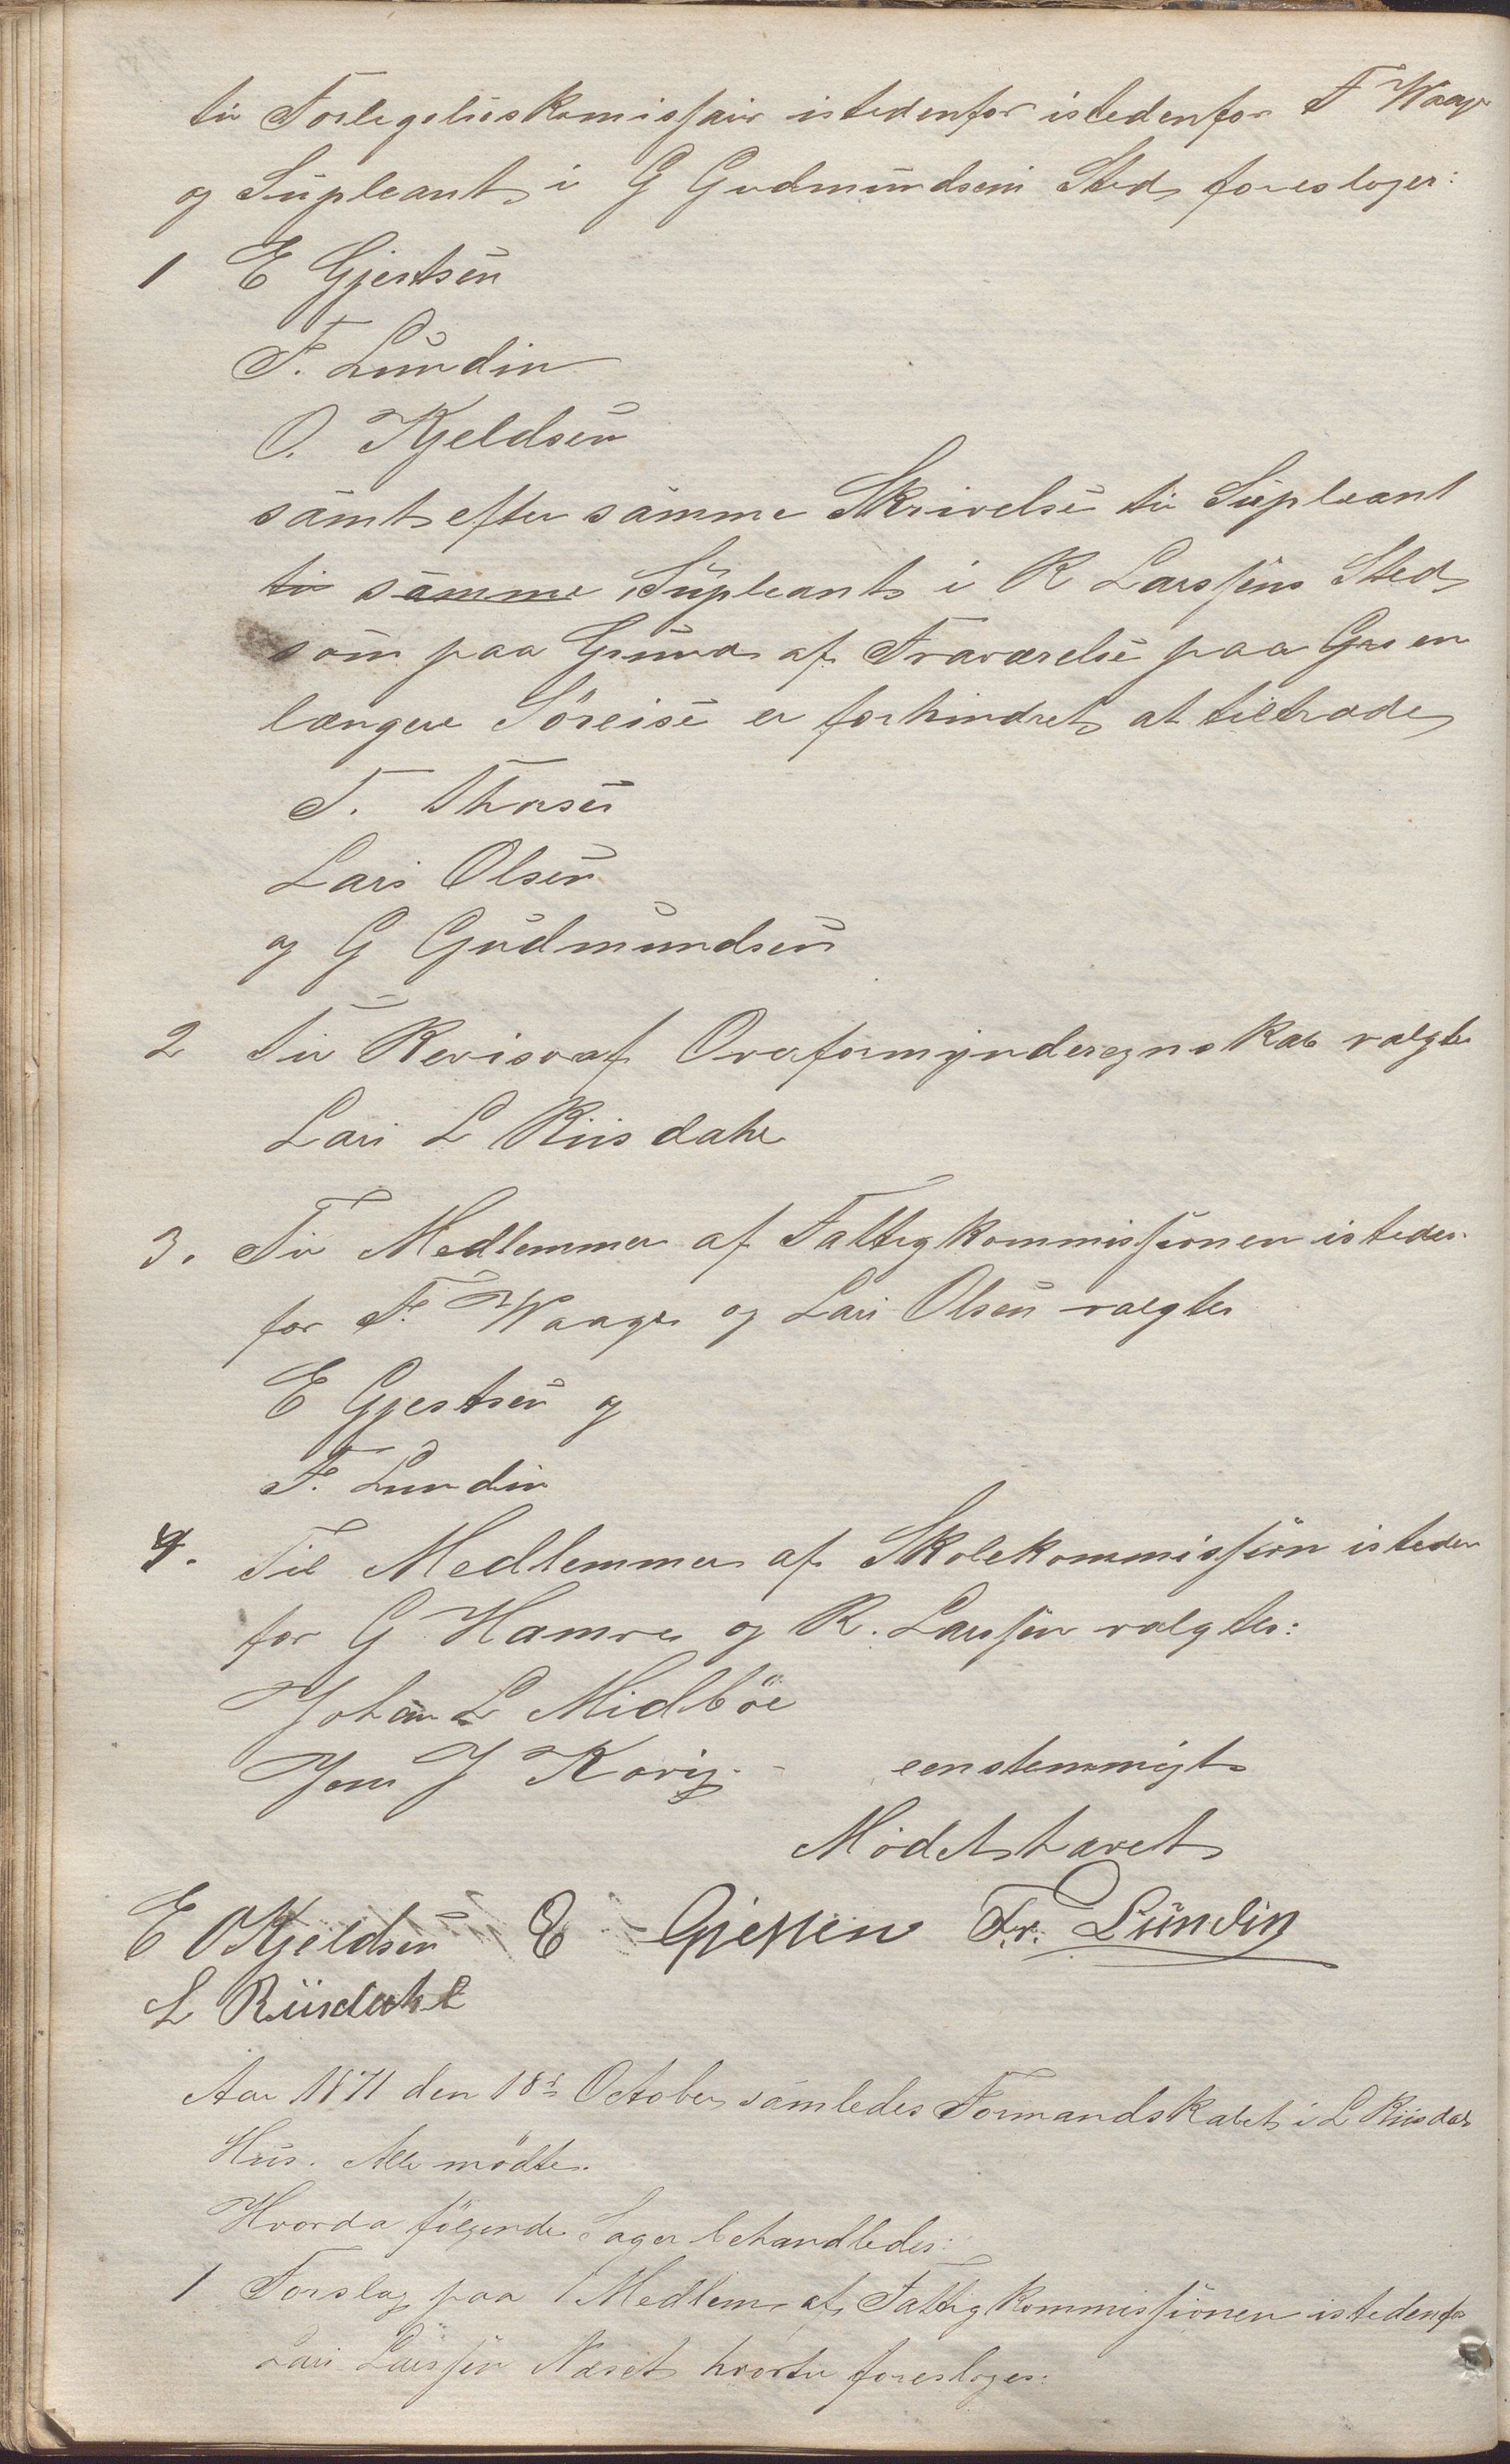 til Forligelseskomissair istedenfor istedenfor F Waage
og Supleant i G Gudmundsens Sted foresloges:
1 E Gjertsen
F. Lundin
O. Kjeldsen
samt efter samme Skrivelse til Supleant
til samme Supleant i R Larssens Sted
som paa Grund af Fraværelse paa Grs en
længere Söreise er forhindret at tiltræde
T. Thorsen
Lars Olsen
og G Gudmundsen
2 Til Revisor af Overformynderegnskab valgtes
Lars L Riisdahl
3. Til Medlemmer af Fattigkommissionen isteden-
for F. Waage og Lars Olsen valgtes
E Gjertsen og
F. Lundin
4. Til Medlemmer af Skolekommission isteden
for G Hamre og R. Larssen valgtes:
Johan L Midböe
Jens J Kovig. - eenstemmigt
Mödet hævet
E O Kjeldsen E Gjertsen Fr. Lundin
L Riisdahl
Aar 1871 den 18de October samledes Formandskabet i L Riisdals
Hus. Alle mödte.
Hvorda fölgende Sager behandledes:
1 Forslag paa 1 Medlem af Fattigkommissionen istedenfor
Lars Larssen Næset hvortil foresloges: